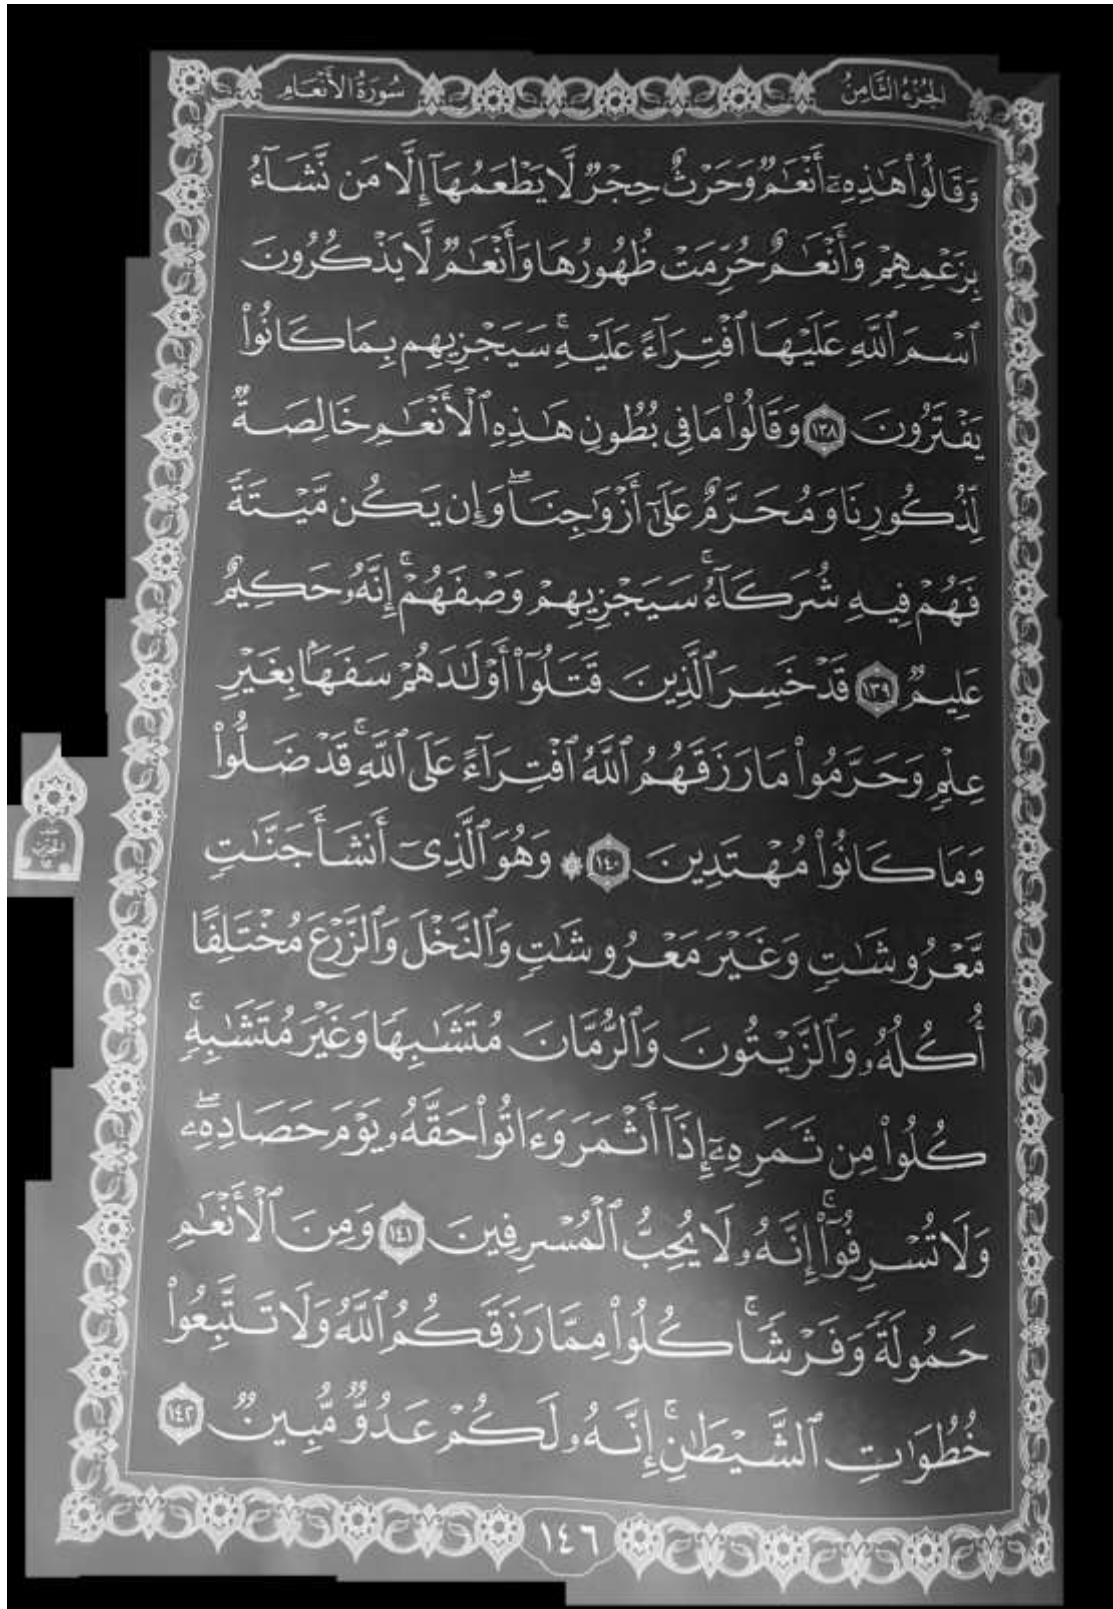 الجُزْءُ الثَّامِنُ
سُورَةُ الأَنْعَامِ
وَقَالُوا۟ هَـٰذِهِۦٓ أَنْعَـٰمٌ وَحَرْثٌ حِجْرٌ لَّا يَطْعَمُهَآ إِلَّا مَن نَّشَآءُ
بِزَعْمِهِمْ وَأَنْعَـٰمٌ حُرِّمَتْ ظُهُورُهَا وَأَنْعَـٰمٌ لَّا يَذْكُرُونَ
ٱسْمَ ٱللَّهِ عَلَيْهَا ٱفْتِرَآءً عَلَيْهِ ۚ سَيَجْزِيهِم بِمَا كَانُوا۟
يَفْتَرُونَ ١٣٨ وَقَالُوا۟ مَا فِى بُطُونِ هَـٰذِهِ ٱلْأَنْعَـٰمِ خَالِصَةٌ
لِّذُكُورِنَا وَمُحَرَّمٌ عَلَىٰٓ أَزْوَٰجِنَا ۖ وَإِن يَكُن مَّيْتَةً
فَهُمْ فِيهِ شُرَكَآءُ ۚ سَيَجْزِيهِمْ وَصْفَهُمْ ۚ إِنَّهُۥ حَكِيمٌ
عَلِيمٌ ١٣٩ قَدْ خَسِرَ ٱلَّذِينَ قَتَلُوٓا۟ أَوْلَـٰدَهُمْ سَفَهًۢا بِغَيْرِ
عِلْمٍ وَحَرَّمُوا۟ مَا رَزَقَهُمُ ٱللَّهُ ٱفْتِرَآءً عَلَى ٱللَّهِ ۚ قَدْ ضَلُّوا۟
وَمَا كَانُوا۟ مُهْتَدِينَ ١٤٠ ۞ وَهُوَ ٱلَّذِىٓ أَنشَأَ جَنَّـٰتٍ
مَّعْرُوشَـٰتٍ وَغَيْرَ مَعْرُوشَـٰتٍ وَٱلنَّخْلَ وَٱلزَّرْعَ مُخْتَلِفًا
أُكُلُهُۥ وَٱلزَّيْتُونَ وَٱلرُّمَّانَ مُتَشَـٰبِهًا وَغَيْرَ مُتَشَـٰبِهٍ ۚ
كُلُوا۟ مِن ثَمَرِهِۦٓ إِذَآ أَثْمَرَ وَءَاتُوا۟ حَقَّهُۥ يَوْمَ حَصَادِهِۦ ۖ
وَلَا تُسْرِفُوٓا۟ ۚ إِنَّهُۥ لَا يُحِبُّ ٱلْمُسْرِفِينَ ١٤١ وَمِنَ ٱلْأَنْعَـٰمِ
حَمُولَةً وَفَرْشًا ۚ كُلُوا۟ مِمَّا رَزَقَكُمُ ٱللَّهُ وَلَا تَتَّبِعُوا۟
خُطُوَٰتِ ٱلشَّيْطَـٰنِ ۚ إِنَّهُۥ لَكُمْ عَدُوٌّ مُّبِينٌ ١٤٢
١٤٦